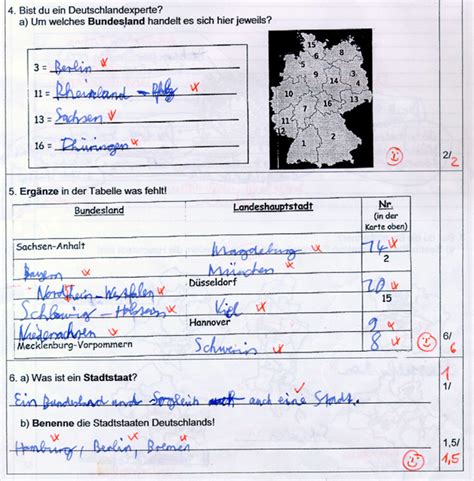 4. Bist du ein Deutschlandexperte?
a) Um welches Bundesland handelt es sich hier jeweils?
3 = Berlin
11 = Rheinland-Pfalz
13 = Sachsen
16 = Thüringen
15
8
6
5
9
3
4
14
10
7
16
13
11
12
1
2
2/2
5. Ergänze in der Tabelle was fehlt!
Bundesland Landeshauptstadt Nr. (in der Karte oben)
Sachsen-Anhalt Magdeburg 14
Bayern München 2
Nordrhein-Westfalen Düsseldorf 10
Schleswig-Holstein Kiel 15
Niedersachsen Hannover 9
Mecklenburg-Vorpommern Schwerin 8
6/6
6. a) Was ist ein Stadtstaat?
1
1/
Ein Bundesland und Sogleich auch eine Stadt.
b) Benenne die Stadtstaaten Deutschlands!
Hamburg, Berlin, Bremen
1,5/
1,5